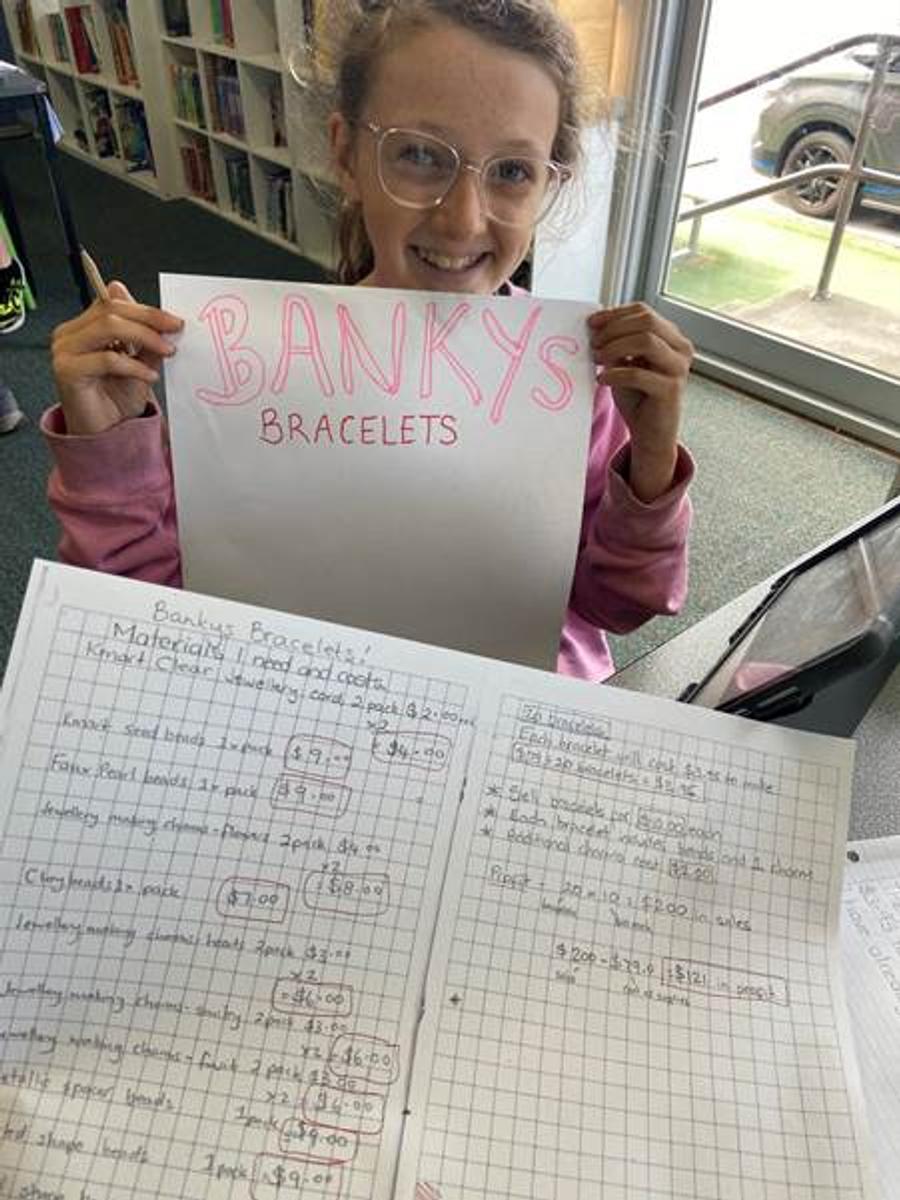 BANKYs
BRACELETS
Bankys Bracelets!
Materials I need and costs
Kmart Clear Jewellery cord 2 pack $2.00
x2
= $4.00
Kmart seed beads 1x pack $9.00
Faux Pearl beads 1x pack $9.00
Jewellery making charms - flowers 2 pack $4.00
x2
= $8.00
Clay beads 1x pack $7.00
Jewellery making charms beads 2 pack $3.00
x2
= $6.00
Jewellery making charms - 2 pack $3.00
x2 = $6.00
Jewellery making charms - fruit 2 pack
x2
metallic spacer beads
1 pack = $9.00
shape beads 1 pack = $9.00
20 bracelets
Each bracelet will cost $3.95 to make
20 bracelets = $3.95
* Sell bracelets for $10.00 each
* Each bracelet includes beads and 1 charm
* Additional charms cost $2.00
Profit - 20 x 10 = $200 in sales
$200 - $79.0 = $121 in profit
sales cost of supplies